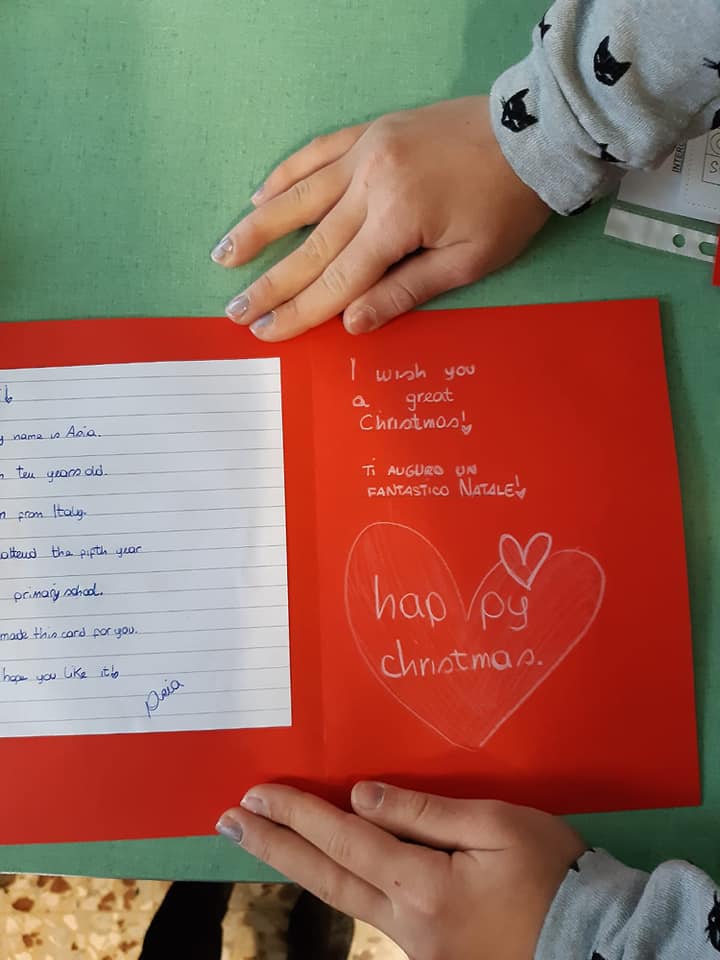 name is Asia.
ten years old.
from Italy.
attend the fifth year
primary school.
made this card for you.
hope you like it
Asia
I wish you
a great
Christmas!
TI AUGURO UN
FANTASTICO NATALE!
happy
christmas.